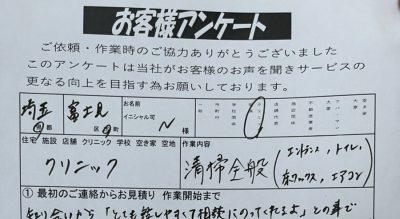 お客様アンケート
ご依頼・作業時のご協力ありがとうございました
このアンケートは当社がお客様のお声を聞きサービスの
更なる向上を目指す為お願いしております。
埼玉 都 県
富士見 区 市 町
お名前
イニシャル可
N 様
住宅 施設 店舗 クリニック 学校 空き家 空地
作業内容
クリニック
清掃全般(エントランス、トイレ、
床ワックス、エアコン)
① 最初のご連絡からお見積り 作業開始まで
知り合いから「とても話しやすくて相談にのってくれるよ」との事で